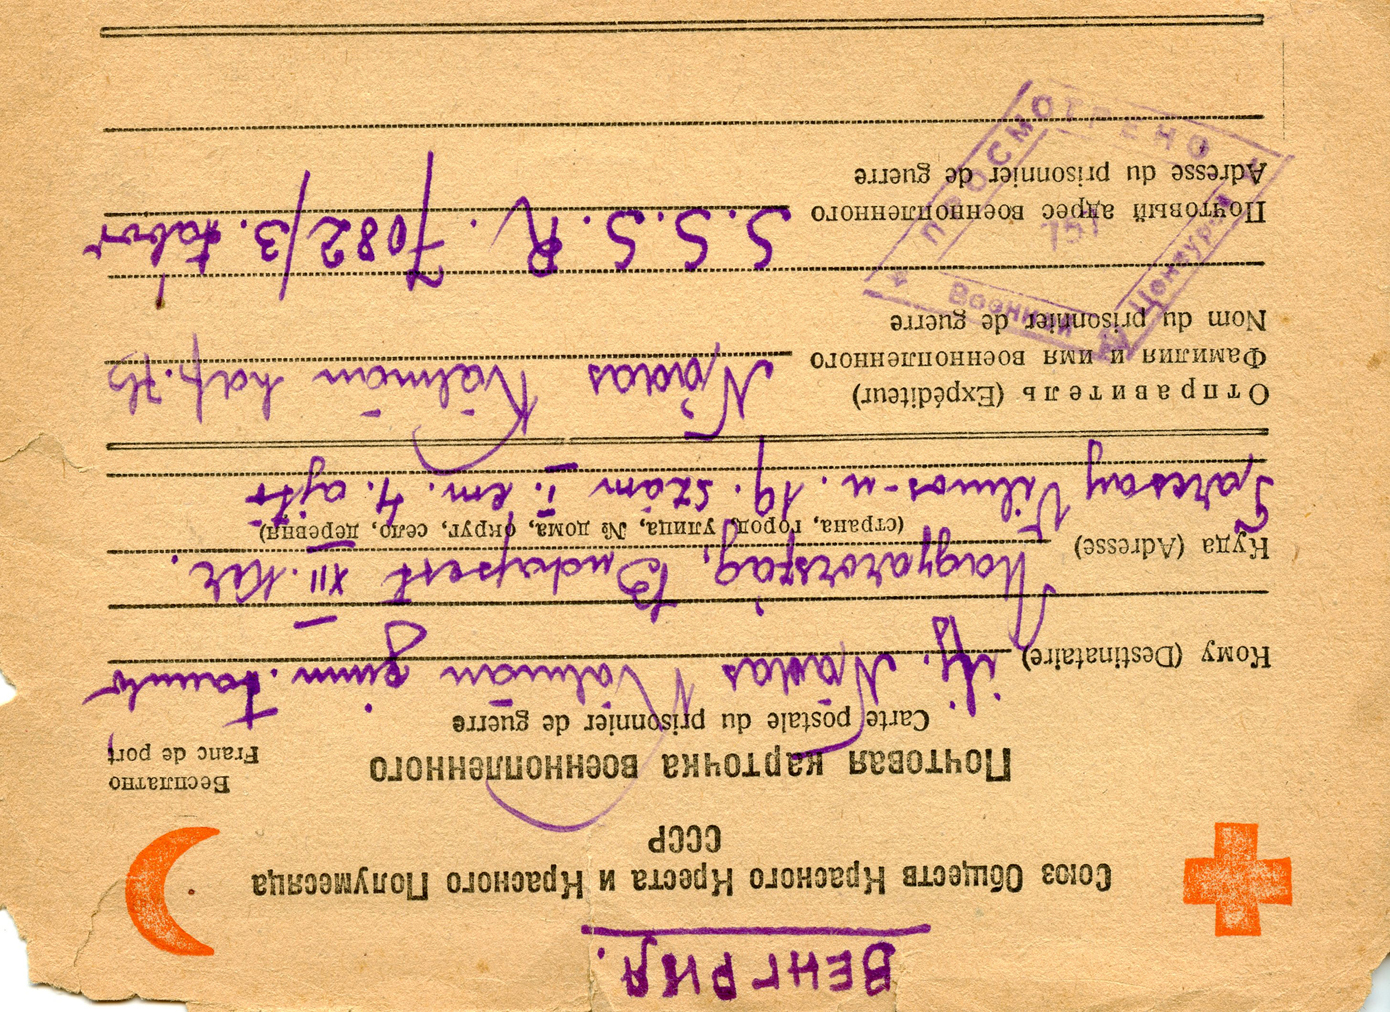 ВЕНГРИЯ.
Союз Обществ Красного Креста и Красного Полумесяца
СССР
Почтовая карточка военнопленного
Carte postale du prisonnier de guerre
Бесплатно
Franc de port
Кому (Destinataire) ifj. Nádas Kálmán gimn. tanuló
Куда (Adresse) Magyarország, Budapest XII. Ker.
(страна, город, улица, № дома, округ, село, деревня)
Vilmos-u. 19. szám I. em. 4. ajtó
Отправитель (Expéditeur)
Фамилия и имя военнопленного Nádas Kálmán hdp.
Nom du prisonnier de guerre
Почтовый адрес военнопленного S.S.S.R. 7082/3. tábor
Adresse du prisonnier de guerre
ПРОСМОТРЕНО
Военной
Цензурой
757